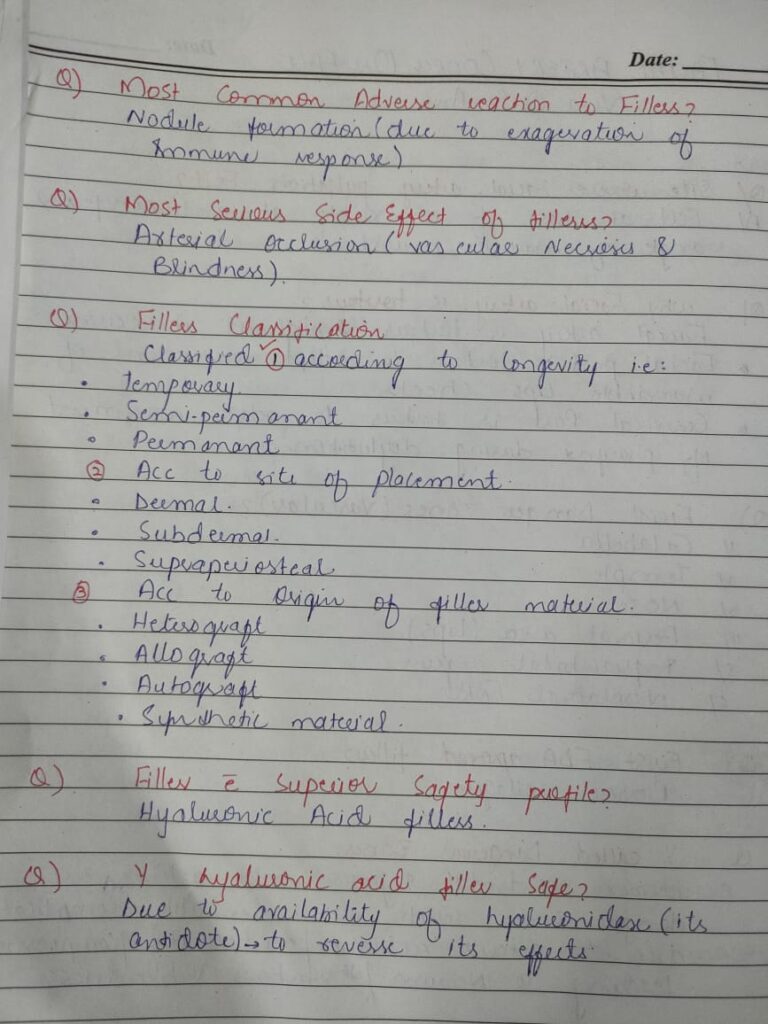 Date:
Q) Most Common Adverse reaction to Fillers?
Nodule formation (due to exageration of
Immune response)
Q) Most Serious Side Effect of fillers?
Arterial Occlusion (vascular Necrosis &
Blindness).
Q) Fillers Classification
Classified ① according to Longevity i.e:
• Temporary
• Semi-permanant
• Permanant
② Acc to site of placement.
• Dermal.
• Subdermal.
• Supraperiosteal
③ Acc to Origin of filler material.
• Heterograft
• Allograft
• Autograft
• Synthetic material.
Q) Filler c̄ Superior Safety profile?
Hyaluronic Acid fillers.
Q) Y hyaluronic acid filler Safe?
Due to availability of hyaluronidase (its
antidote) → to reverse its effects.